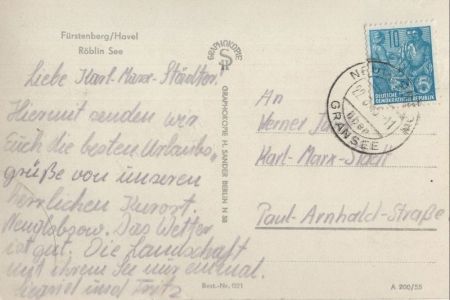 Fürstenberg/Havel
Röblin See
Liebe Karl-Marx-Städter!
Hiermit senden wir
Euch die besten Urlaubs
grüße von unseren
herrlichen Kurort.
Neuglobsow. Das Wetter
ist gut. Die Landschaft
mit ihrem See nur einmal.
Siegried und Fritz
GRAPHOKOPIE
GRAPHOKOPIE H. SANDER BERLIN N 58
Best.-Nr. 021
10
5
DEUTSCHE
DEMOKRATISCHE REPUBLIK
GRANSEE
An
Werner
Karl-Marx-Stadt
Paul-Arnhold-Straße
A 200/55